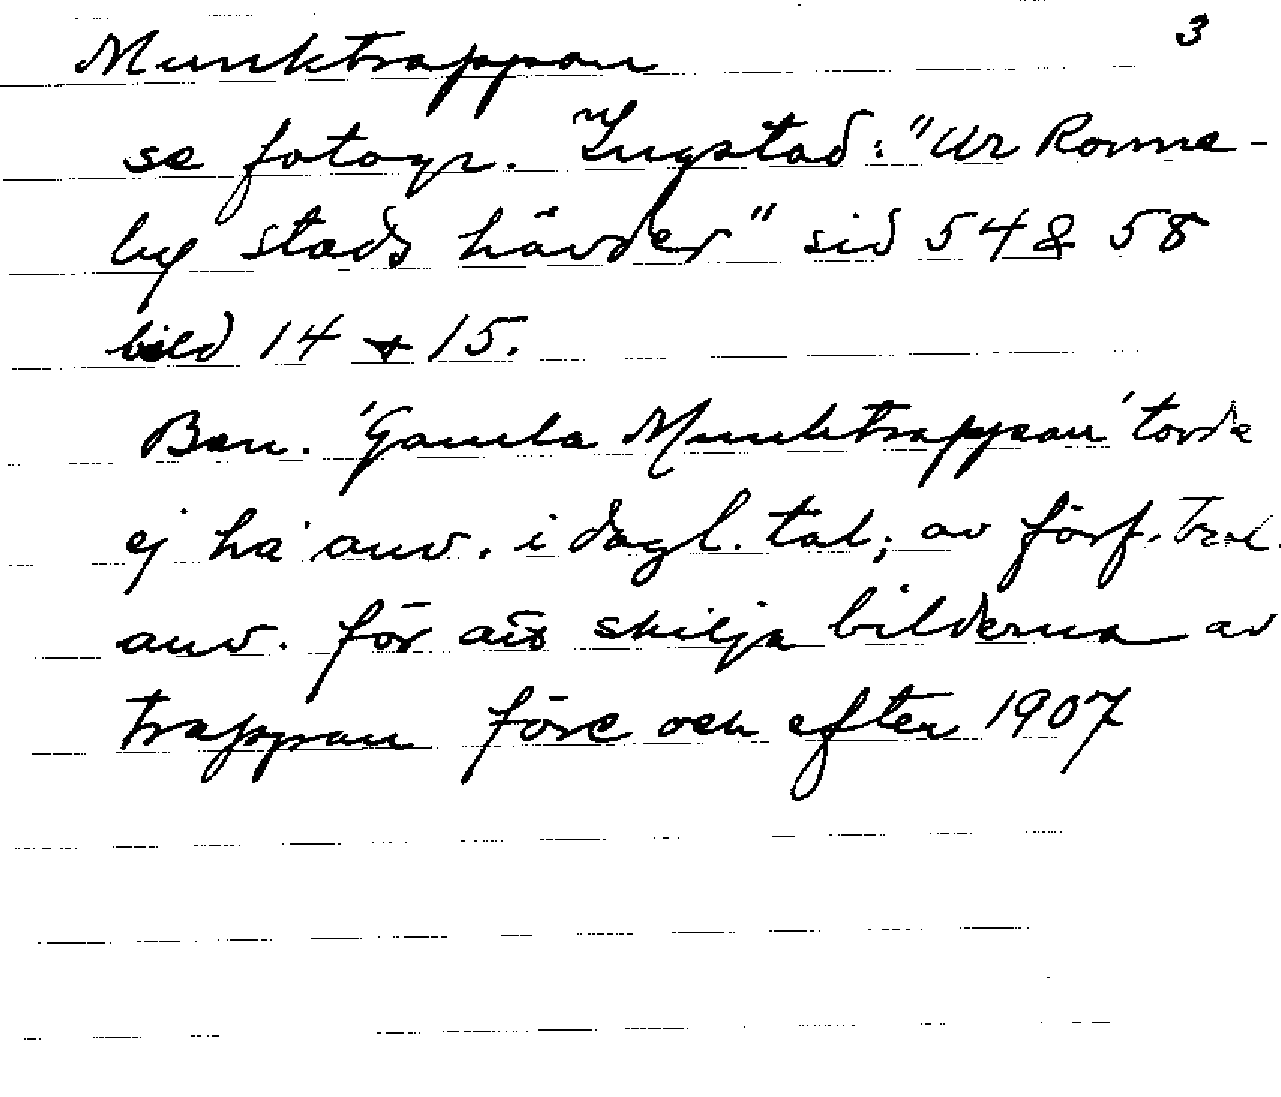 Munktrappan 3
se fotogr. Ingstad: "Ur Ronne-
by stads hävder" sid 54 & 58
bild 14 + 15.
Ben. 'Gamla Munktrappan' torde
ej ha anv. i dagl. tal; av förf.
anv. för att skilja bilderna av
trappan före och efter 1907